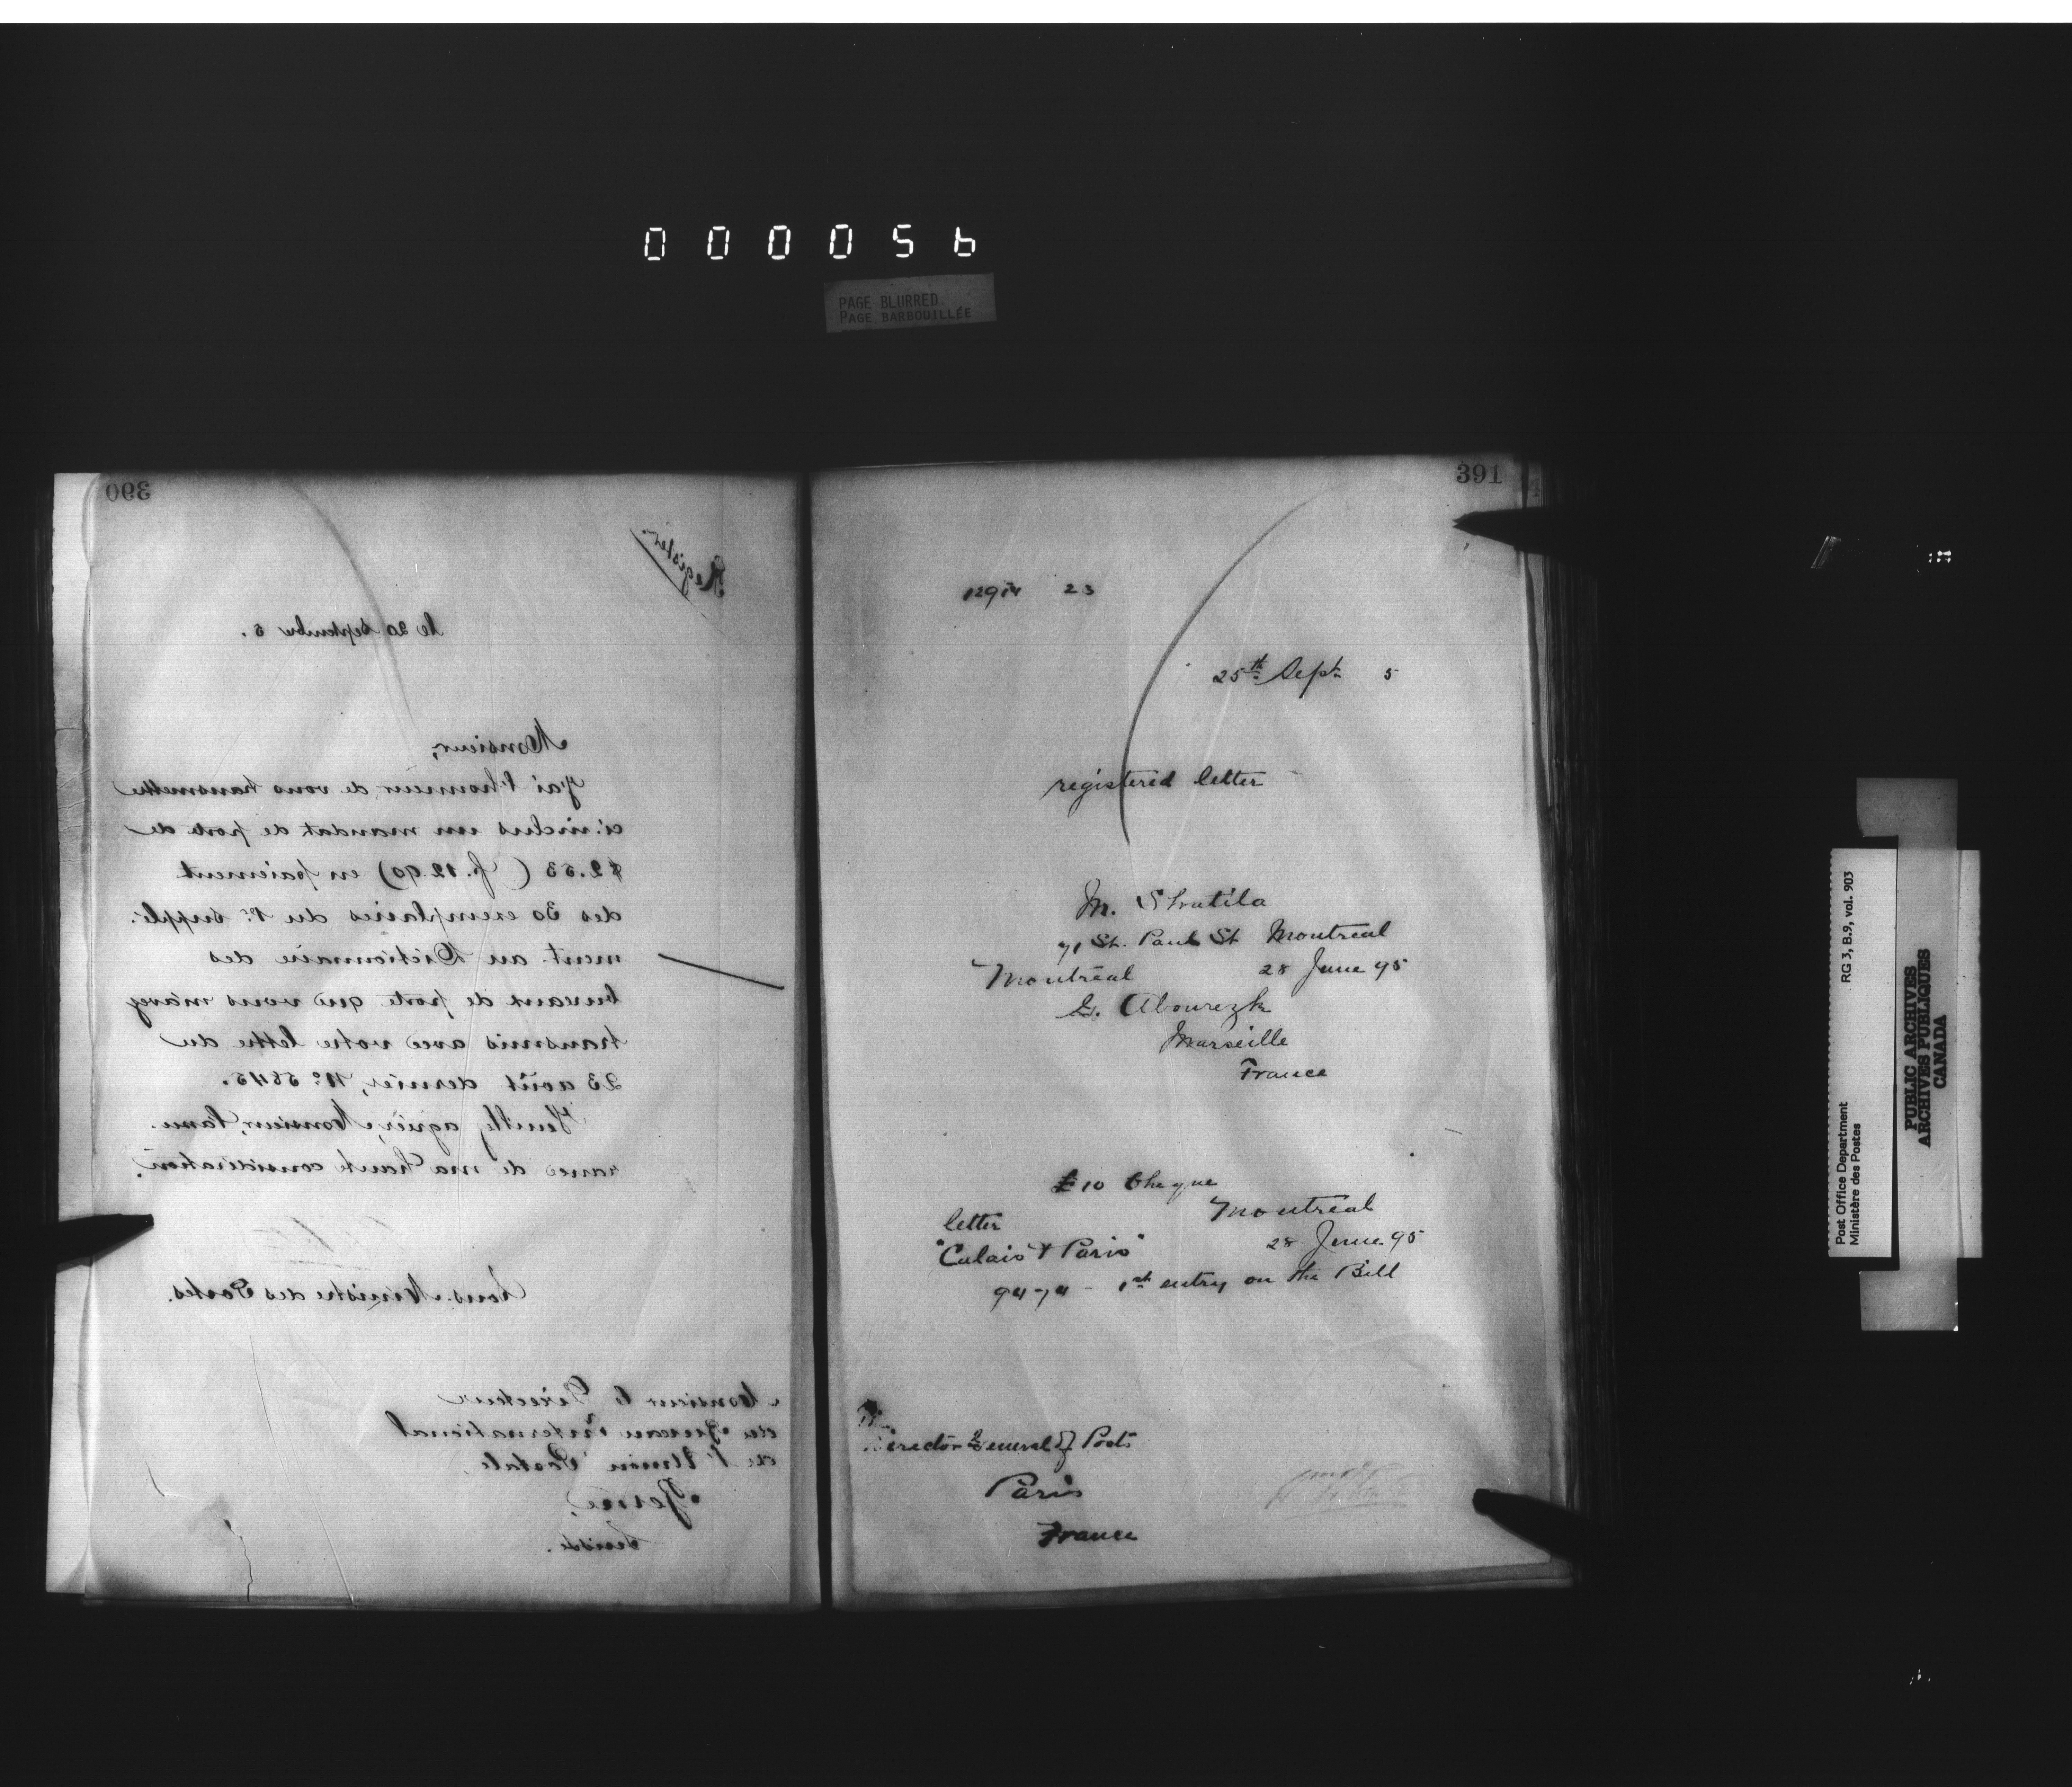 000056
PAGE BLURRED
PAGE BARBOUILLÉE
390
Register.
le 20 Septembre 5.
Monsieur,
J'ai l'honneur de vous transmettre
ci-inclus un mandat de poste de
$2.53 (f. 12.90) en paiement
des 30 exemplaires du 1er supplé-
ment au Dictionnaire des
bureaux de poste que vous m'avez
transmis avec votre lettre du
23 août dernier, No. 5645.
Veuillez agréer, Monsieur, l'assu-
rance de ma haute considération.
Sous-Ministre des Postes.
Monsieur le Directeur
du Bureau International
de l'Union Postale,
Berne,
Suisse.
391
23
25th Sept 5
registered letter
M. Shatila
71 St. Paul St Montreal
Montreal 28 June 95
G. Abourezk
Marseille
France
£10 Cheque
letter Montreal
"Calais & Paris" 28 June 95
9474 - 1st entry on the Bill
Director General of Posts
Paris
France
Post Office Department RG 3, B.9, vol. 903
Ministère des Postes
PUBLIC ARCHIVES
ARCHIVES PUBLIQUES
CANADA